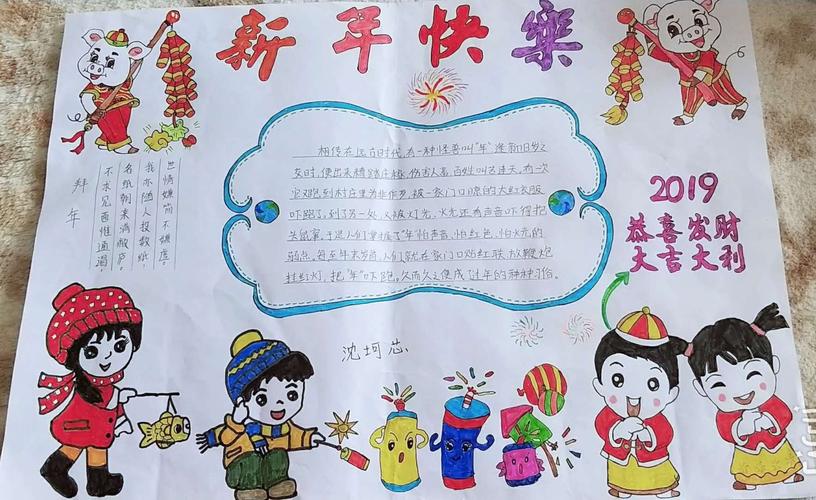 新年快樂
拜年
不求见面惟通谒,
名纸朝来满敝庐。
我亦随人投数纸,
世情嫌简不嫌虚。
相传在远古时代,有一种怪兽叫“年”,逢新旧岁之
交时,便出来糟踏庄稼,伤害人畜,百姓叫苦连天。有一次
它又跑到村庄里为非作歹,被一家门口晾的大红衣服
吓跑了,到了另一处,又被灯光,火光还有声音吓得抱
头鼠窜。于是人们掌握了“年”怕声音、怕红色、怕火光的
弱点,每至年末岁首,人们就在家门口贴红联,放鞭炮
挂红灯,把“年”吓跑,久而久之便成了过年的种种习俗。
2019
恭喜发财
大吉大利
沈坷芯